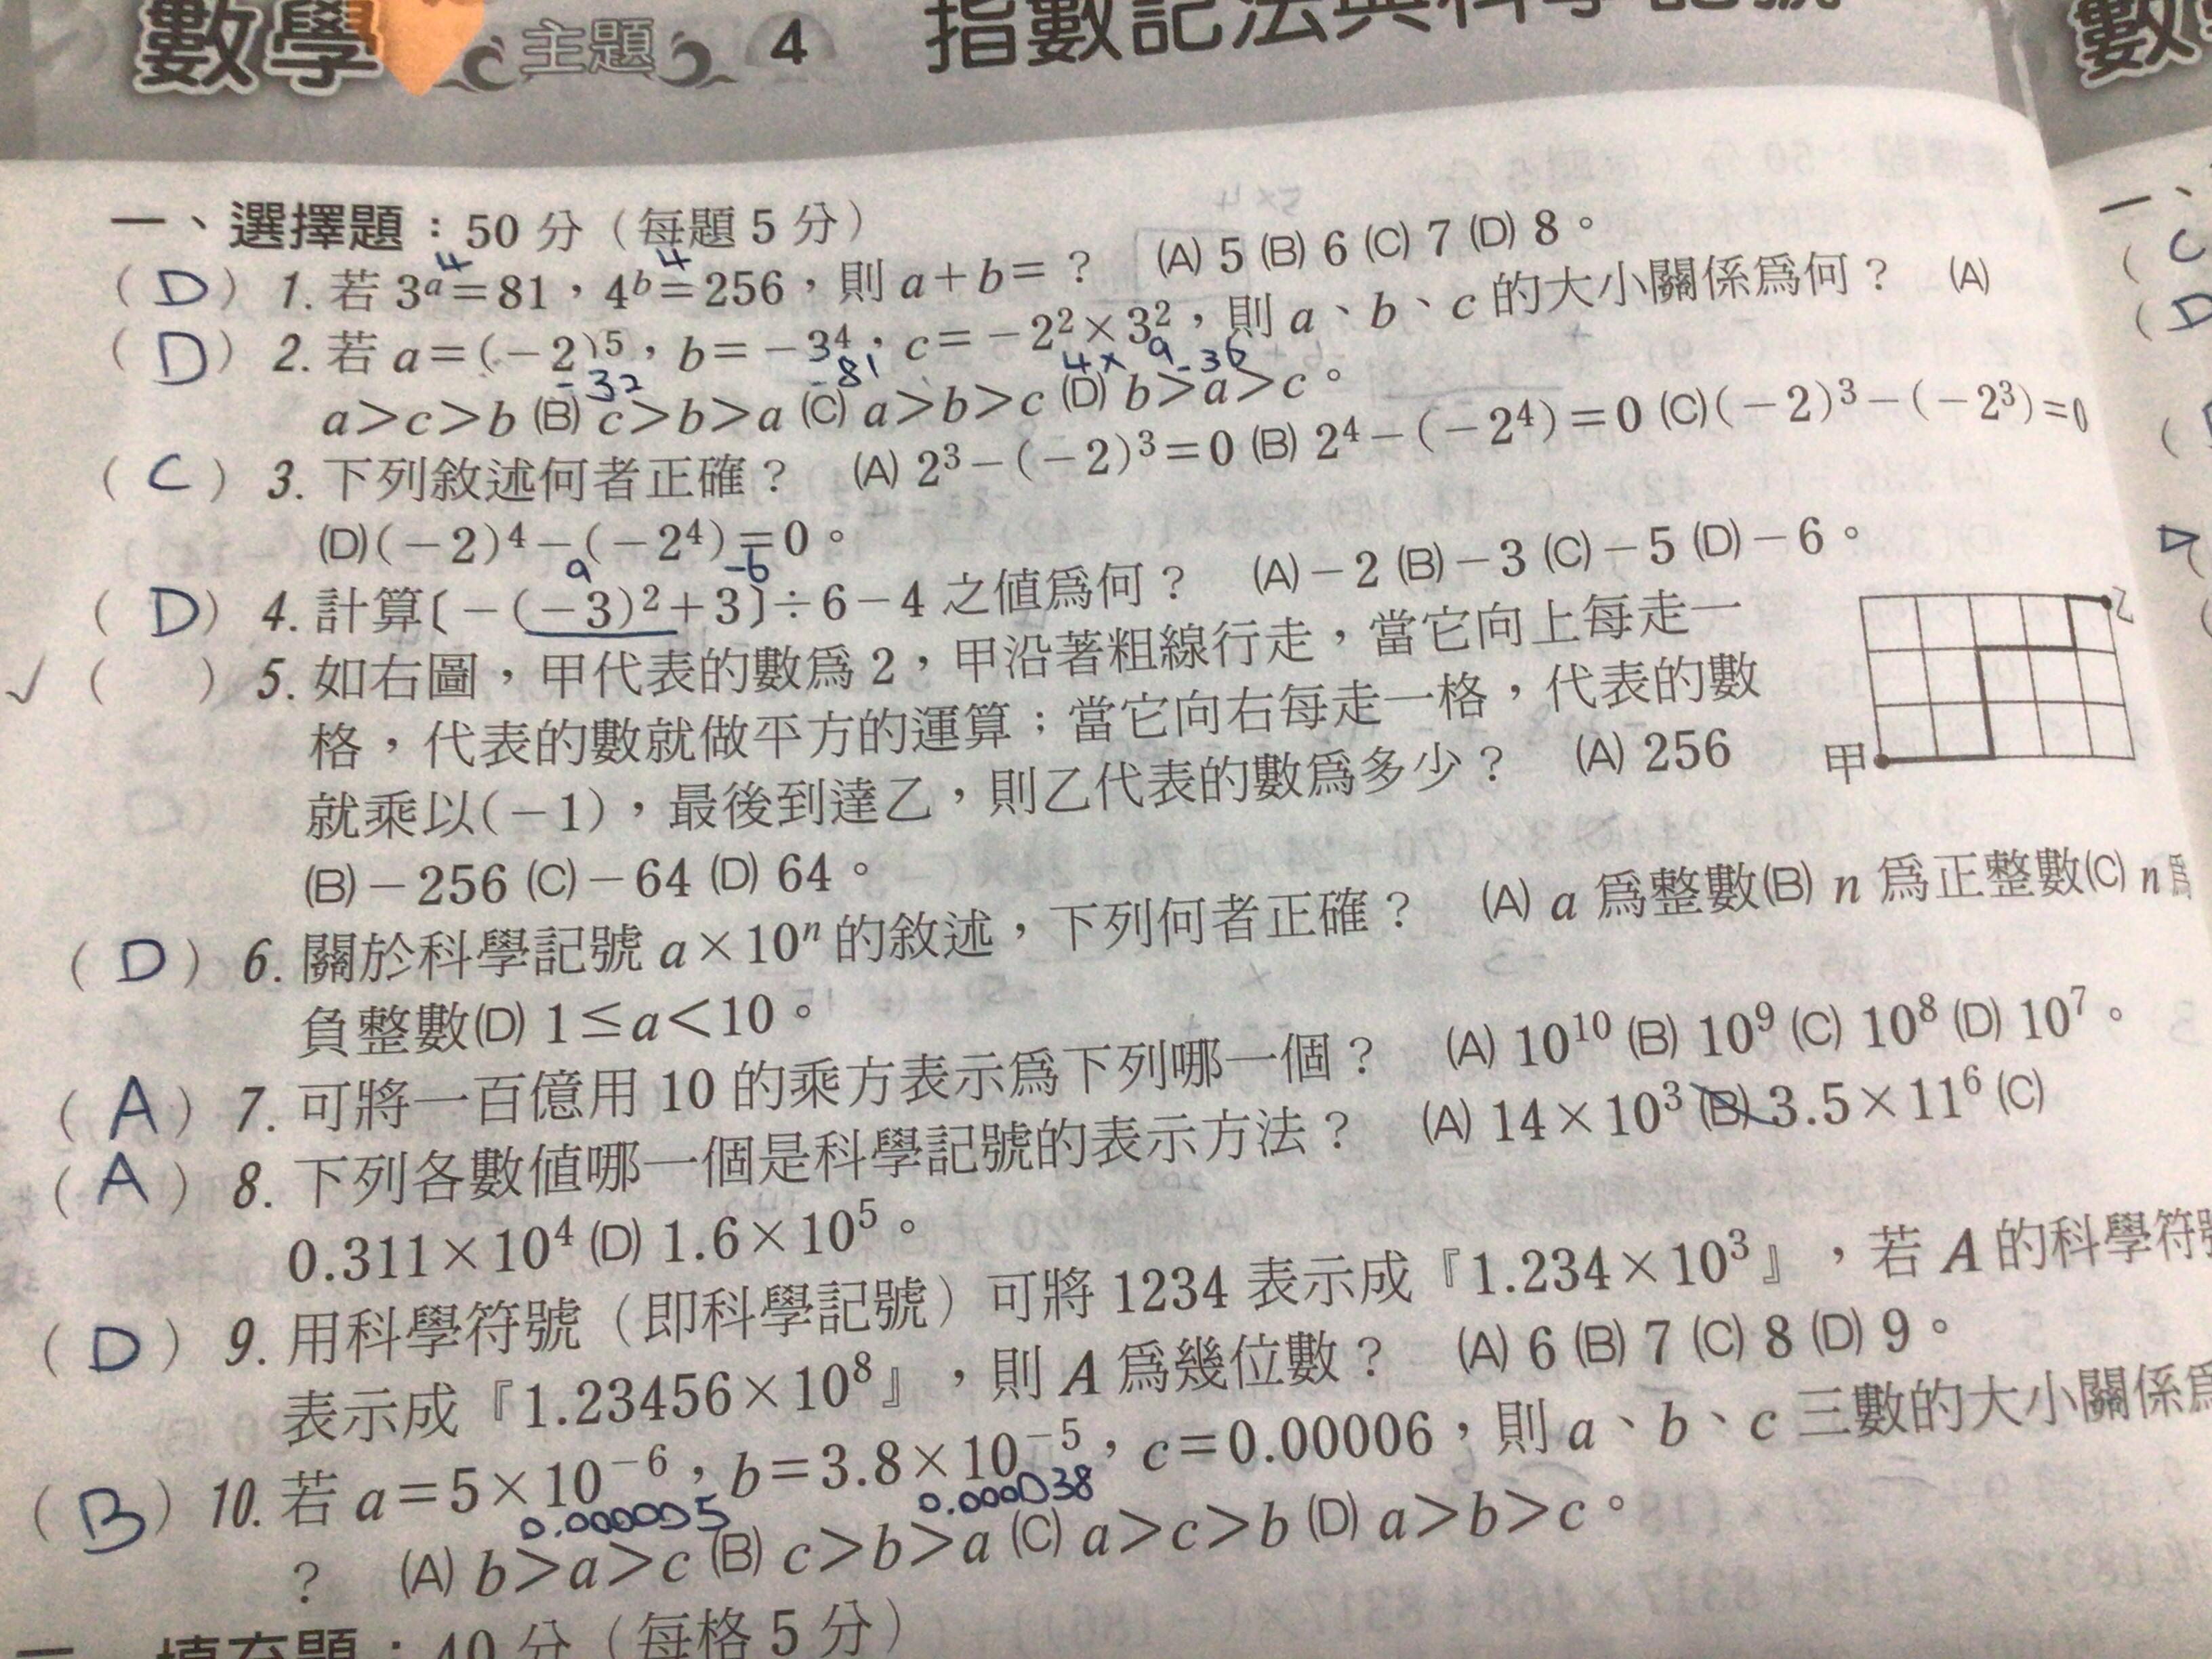 數學 主題 4 指數記法與科學記號
一、選擇題:50 分(每題 5 分)
4 4
( D ) 1. 若 3ᵃ=81,4ᵇ=256,則 a+b=? (A) 5 (B) 6 (C) 7 (D) 8。
( D ) 2. 若 a=(-2)⁵,b=-3⁴,c=-2²×3²,則 a、b、c 的大小關係為何? (A)
-32 -81 4× 9 -36
a>c>b (B) c>b>a (C) a>b>c (D) b>a>c。
( C ) 3. 下列敘述何者正確? (A) 2³-(-2)³=0 (B) 2⁴-(-2⁴)=0 (C)(-2)³-(-2³)=0
(D)(-2)⁴-(-2⁴)=0。
9 -6
( D ) 4. 計算〔-(-3)²+3〕÷6-4 之值為何? (A)-2 (B)-3 (C)-5 (D)-6。
✓ ( ) 5. 如右圖,甲代表的數為 2,甲沿著粗線行走,當它向上每走一
格,代表的數就做平方的運算;當它向右每走一格,代表的數
就乘以(-1),最後到達乙,則乙代表的數為多少? (A) 256
(B)-256 (C)-64 (D) 64。
乙
甲
( D ) 6. 關於科學記號 a×10ⁿ 的敘述,下列何者正確? (A) a 為整數(B) n 為正整數(C) n 為
負整數(D) 1≤a<10。
( A ) 7. 可將一百億用 10 的乘方表示為下列哪一個? (A) 10¹⁰ (B) 10⁹ (C) 10⁸ (D) 10⁷。
( A ) 8. 下列各數值哪一個是科學記號的表示方法? (A) 14×10³ (B) 3.5×11⁶ (C)
0.311×10⁴ (D) 1.6×10⁵。
( D ) 9. 用科學符號(即科學記號)可將 1234 表示成『1.234×10³』,若 A 的科學符號
表示成『1.23456×10⁸』,則 A 為幾位數? (A) 6 (B) 7 (C) 8 (D) 9。
( B ) 10. 若 a=5×10⁻⁶,b=3.8×10⁻⁵,c=0.00006,則 a、b、c 三數的大小關係為
0.000005 0.000038
? (A) b>a>c (B) c>b>a (C) a>c>b (D) a>b>c。
二、填充題:40 分(每格 5 分)
數
一、
( C
( D